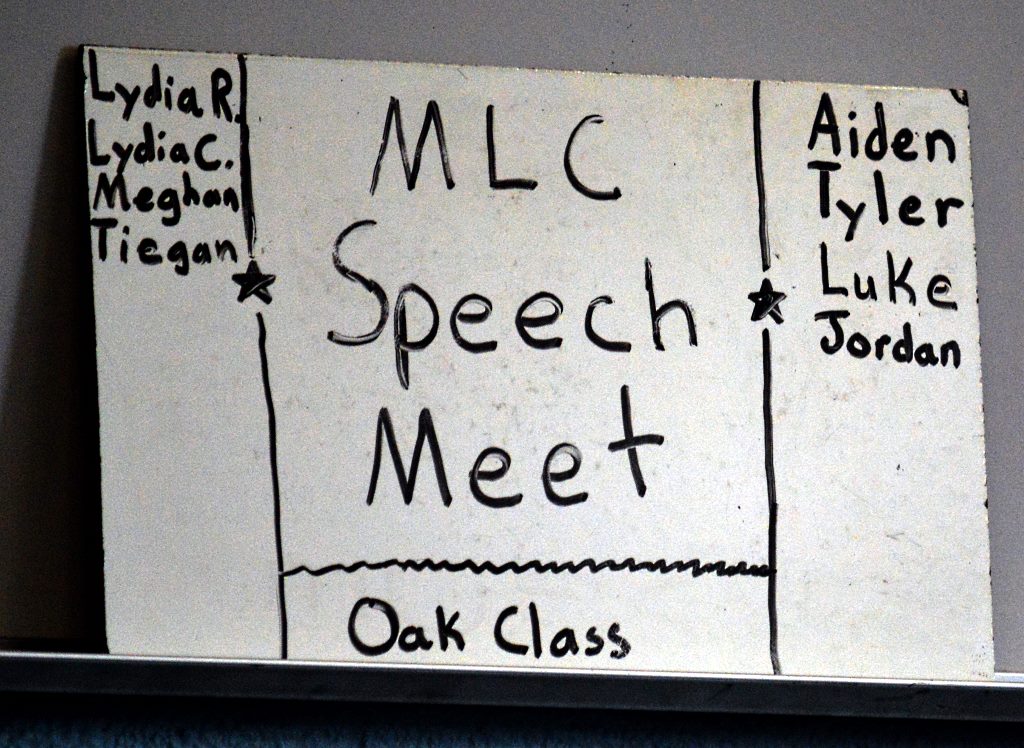 Lydia R.
Lydia C.
Meghan
Tiegan
MLC
Speech
Meet
Oak Class
Aiden
Tyler
Luke
Jordan